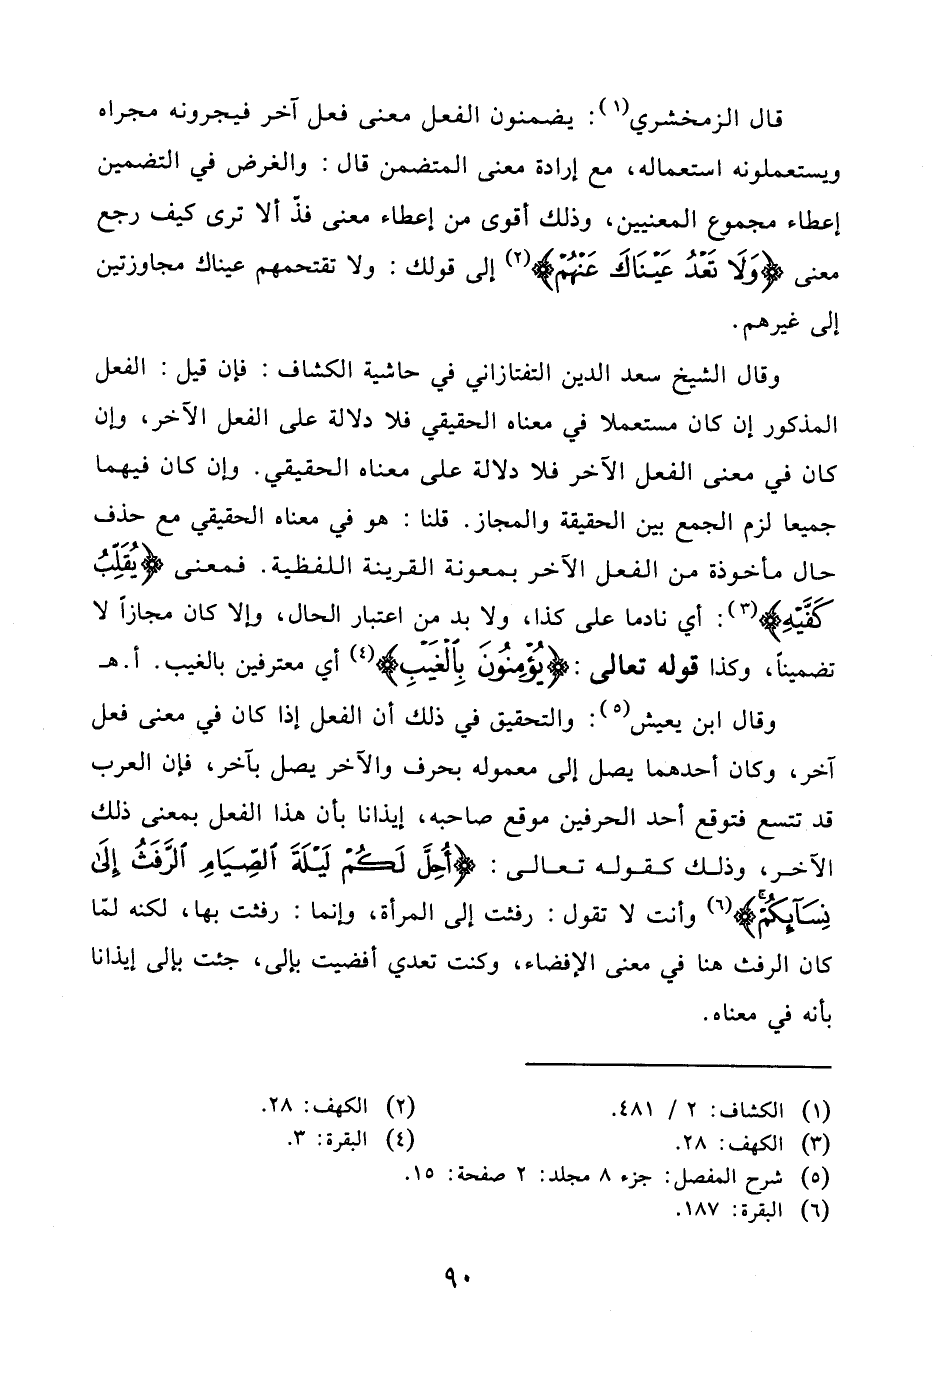 قال الزمخشري(١): يضمنون الفعل معنى فعل آخر فيجرونه مجراه
ويستعملونه استعماله، مع إرادة معنى المتضمن قال : والغرض في التضمين
إعطاء مجموع المعنيين، وذلك أقوى من إعطاء معنى فذّ ألا ترى كيف رجع
معنى ﴿وَلَا تَعْدُ عَيْنَاكَ عَنْهُمْ﴾(٢) إلى قولك : ولا تقتحمهم عيناك مجاوزتين
إلى غيرهم.
وقال الشيخ سعد الدين التفتازاني في حاشية الكشاف : فإن قيل : الفعل
المذكور إن كان مستعملا في معناه الحقيقي فلا دلالة على الفعل الآخر، وإن
كان في معنى الفعل الآخر فلا دلالة على معناه الحقيقي. وإن كان فيهما
جميعا لزم الجمع بين الحقيقة والمجاز. قلنا : هو في معناه الحقيقي مع حذف
حال مأخوذة من الفعل الآخر بمعونة القرينة اللفظية. فمعنى ﴿يُقَلِّبُ
كَفَّيْهِ﴾(٣): أي نادما على كذا، ولا بد من اعتبار الحال، وإلا كان مجازاً لا
تضميناً، وكذا قوله تعالى :﴿يُؤْمِنُونَ بِالْغَيْبِ﴾(٤) أي معترفين بالغيب. أ.هـ
وقال ابن يعيش(٥): والتحقيق في ذلك أن الفعل إذا كان في معنى فعل
آخر، وكان أحدهما يصل إلى معموله بحرف والآخر يصل بآخر، فإن العرب
قد تتسع فتوقع أحد الحرفين موقع صاحبه، إيذانا بأن هذا الفعل بمعنى ذلك
الآخر، وذلك كقوله تعالى : ﴿أُحِلَّ لَكُمْ لَيْلَةَ ٱلصِّيَامِ ٱلرَّفَثُ إِلَىٰ
نِسَآئِكُمْ﴾(٦) وأنت لا تقول : رفثت إلى المرأة، وإنما : رفثت بها، لكنه لمّا
كان الرفث هنا في معنى الإفضاء، وكنت تعدي أفضيت بإلى، جئت بإلى إيذانا
بأنه في معناه.
(١) الكشاف: ٢ / ٤٨١. (٢) الكهف: ٢٨.
(٣) الكهف: ٢٨. (٤) البقرة: ٣.
(٥) شرح المفصل: جزء ٨ مجلد: ٢ صفحة: ١٥.
(٦) البقرة: ١٨٧.
٩٠